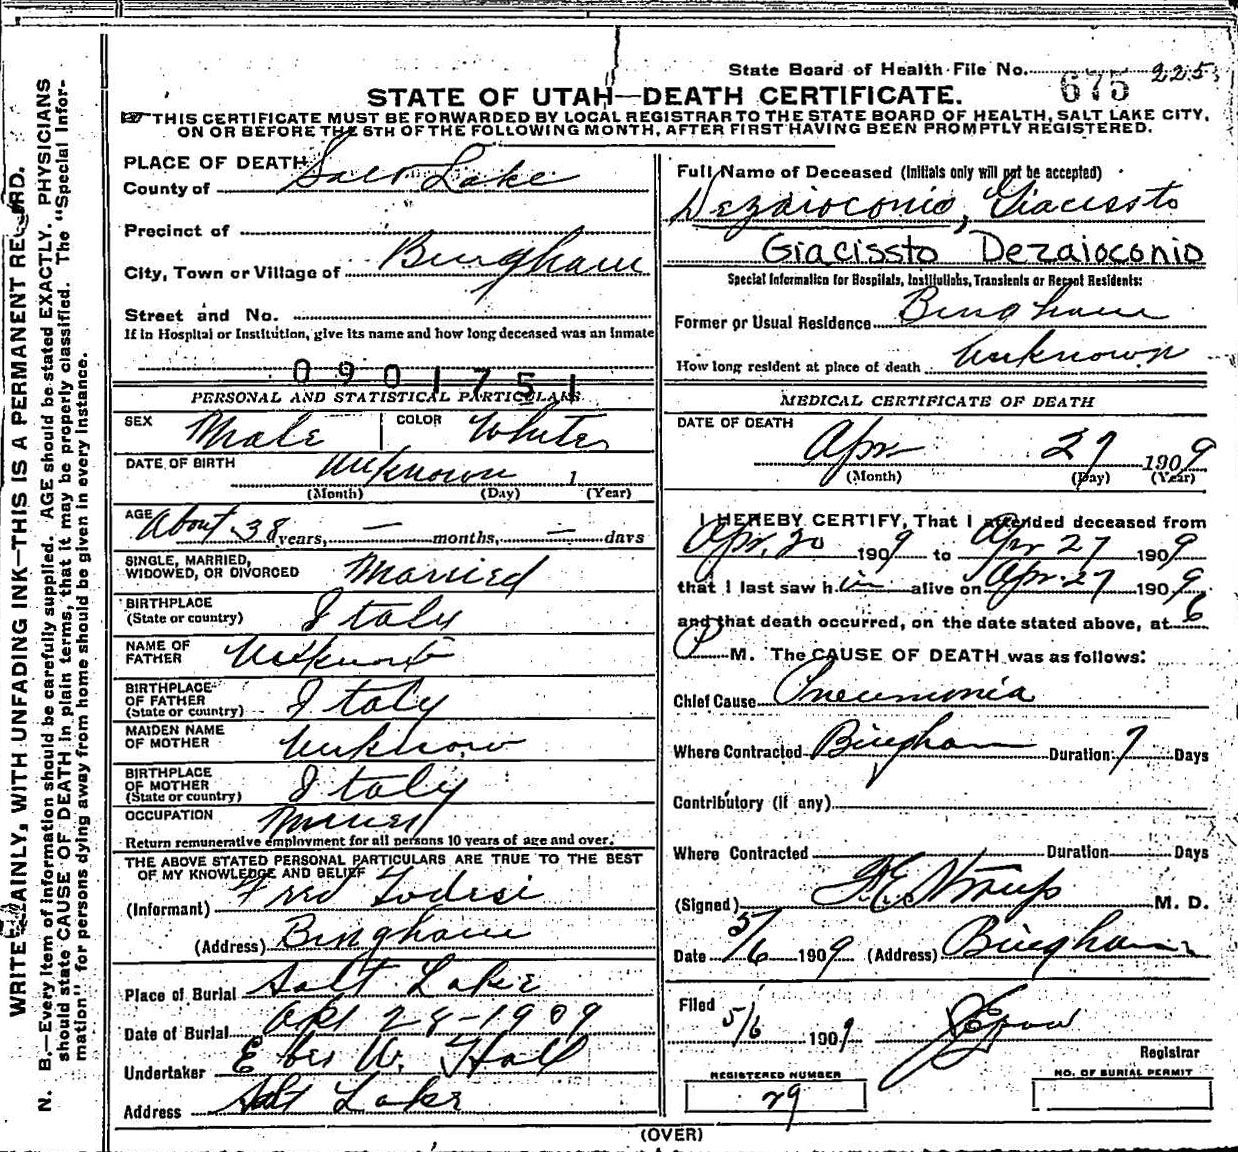 State Board of Health File No. 675 225
STATE OF UTAH—DEATH CERTIFICATE.
THIS CERTIFICATE MUST BE FORWARDED BY LOCAL REGISTRAR TO THE STATE BOARD OF HEALTH, SALT LAKE CITY,
ON OR BEFORE THE 5TH OF THE FOLLOWING MONTH, AFTER FIRST HAVING BEEN PROMPTLY REGISTERED.
PLACE OF DEATH
County of Salt Lake
Precinct of
City, Town or Village of Bingham
Street and No.
If in Hospital or Institution, give its name and how long deceased was an inmate
0901751
PERSONAL AND STATISTICAL PARTICULARS
SEX Male COLOR White
DATE OF BIRTH Unknown 1
(Month) (Day) (Year)
AGE About 38 years, — months, — days
SINGLE, MARRIED,
WIDOWED, OR DIVORCED Married
BIRTHPLACE
(State or country) Italy
NAME OF
FATHER Unknown
BIRTHPLACE
OF FATHER
(State or country) Italy
MAIDEN NAME
OF MOTHER Unknown
BIRTHPLACE
OF MOTHER
(State or country) Italy
OCCUPATION Miner
Return remunerative employment for all persons 10 years of age and over.
THE ABOVE STATED PERSONAL PARTICULARS ARE TRUE TO THE BEST
OF MY KNOWLEDGE AND BELIEF
(Informant) Fred Todesi
(Address) Bingham
Place of Burial Salt Lake
Date of Burial Apr 28-1909
Undertaker Eber W. Hall
Address Salt Lake
Full Name of Deceased (Initials only will not be accepted)
Dezaioconio, Giacissto
Giacissto Dezaioconio
Special Information for Hospitals, Institutions, Transients or Recent Residents:
Former or Usual Residence Bingham
How long resident at place of death Unknown
MEDICAL CERTIFICATE OF DEATH
DATE OF DEATH
Apr 27 1909
(Month) (Day) (Year)
I HEREBY CERTIFY, That I attended deceased from
Apr. 20 1909 to Apr 27 1909
that I last saw him alive on Apr. 27 1909
and that death occurred, on the date stated above, at 6
P M. The CAUSE OF DEATH was as follows:
Chief Cause Pneumonia
Where Contracted Bingham Duration 7 Days
Contributory (if any)
Where Contracted Duration Days
(Signed) F.E. Straup M. D.
Date 5/6 1909 (Address) Bingham
Filed
5/6 1909
Registrar
REGISTERED NUMBER
29
NO. OF BURIAL PERMIT
(OVER)
WRITE PLAINLY, WITH UNFADING INK—THIS IS A PERMANENT RECORD.
N. B.—Every item of information should be carefully supplied. AGE should be stated EXACTLY. PHYSICIANS
should state CAUSE OF DEATH in plain terms, that it may be properly classified. The "Special Infor-
mation" for persons dying away from home should be given in every instance.